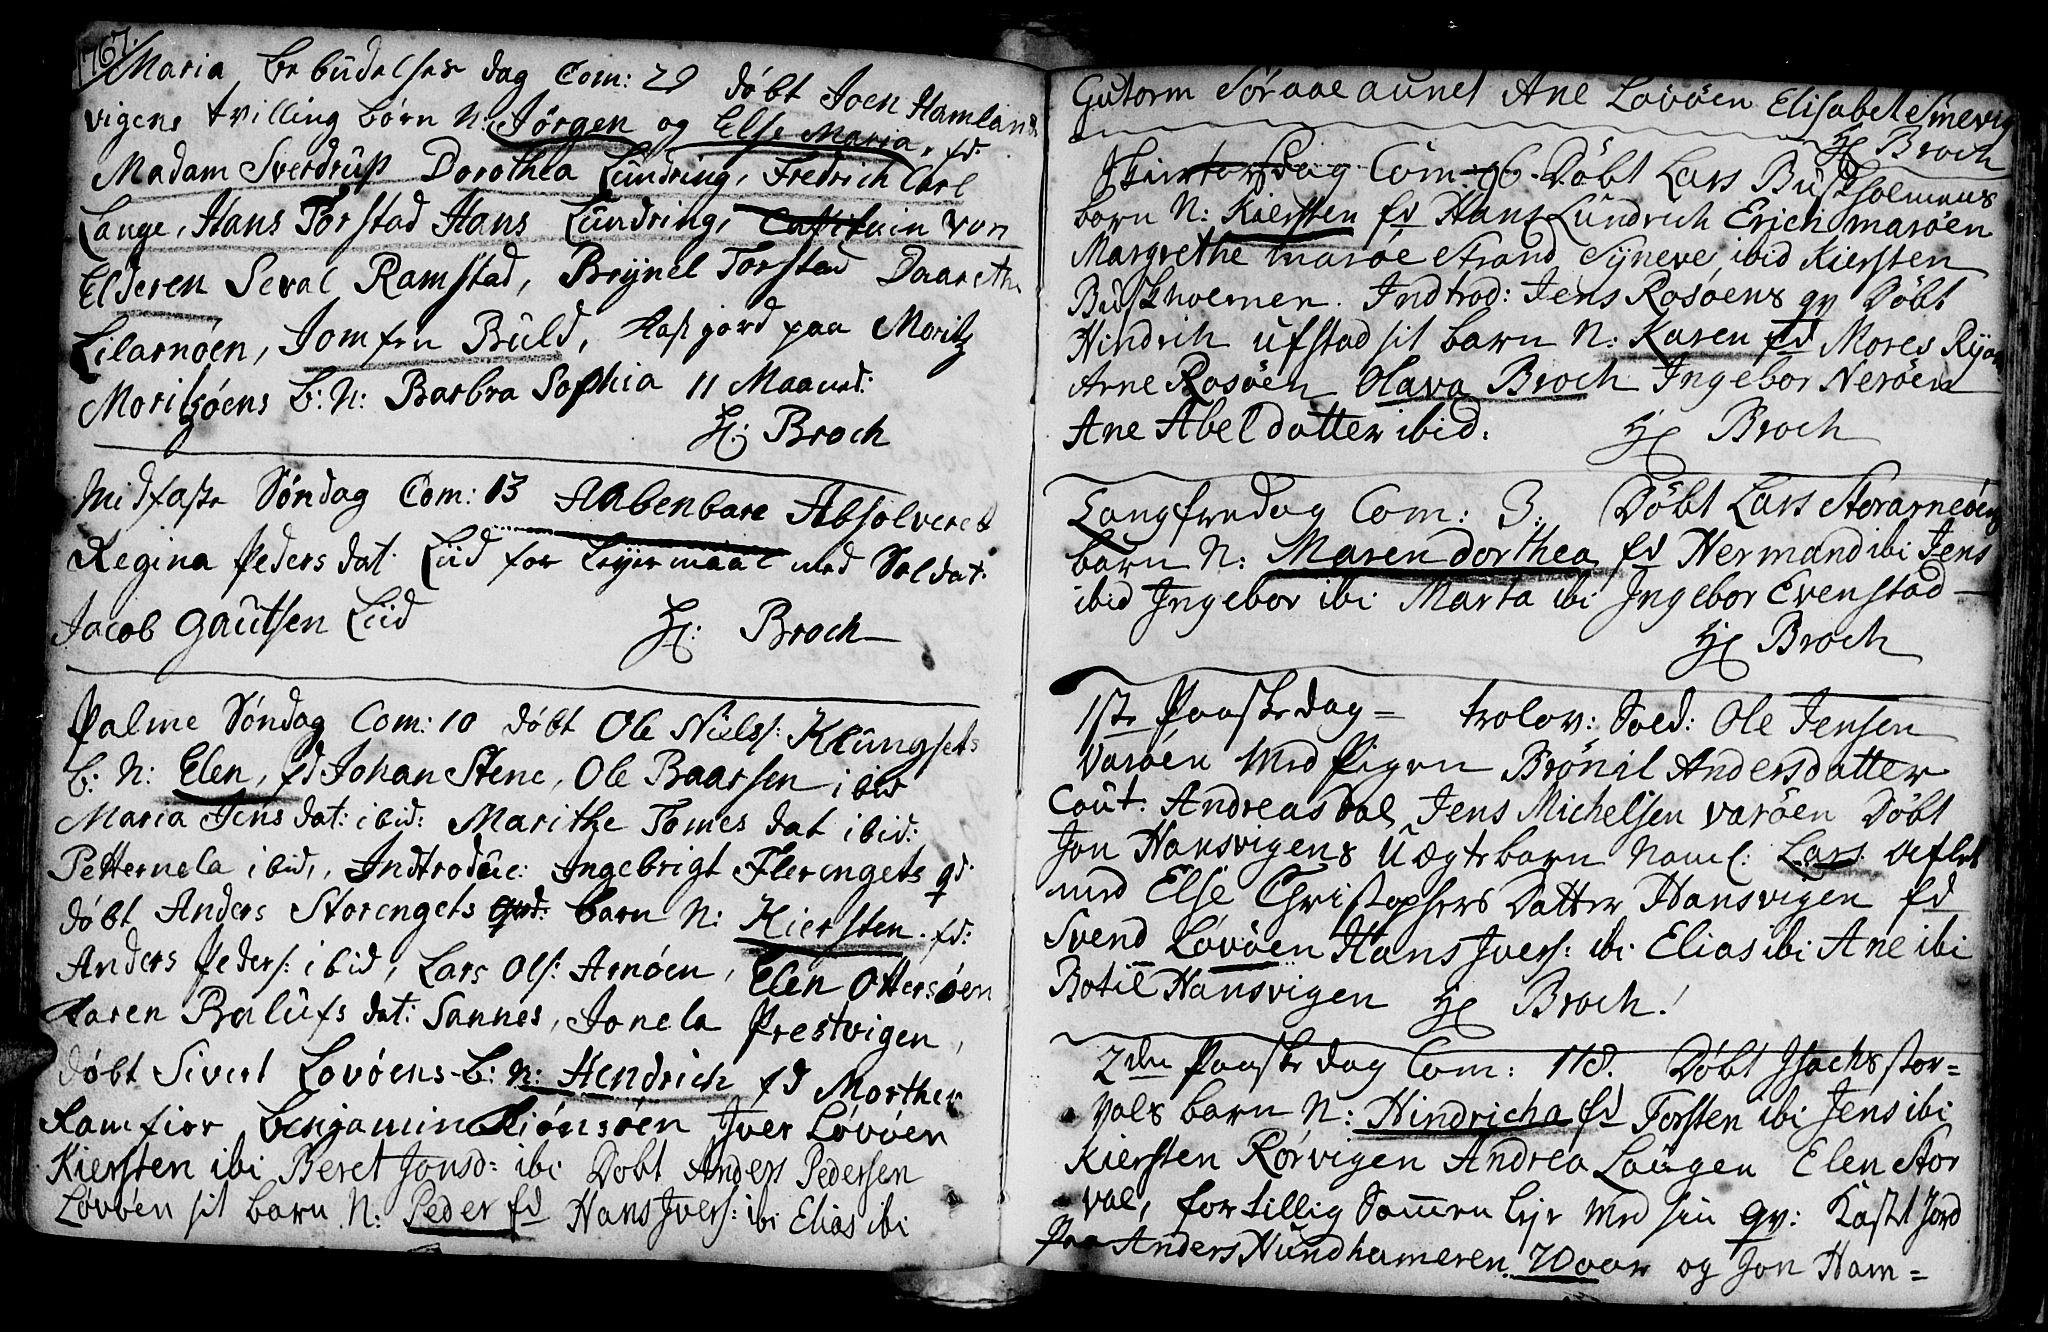 1767.
Maria bebudelses dag Com: 29 døbt Joen Hamland
vigens tvilling børn N: Jørgen og Else Maria, fd:
Madam Sverdrup Dorothea Lundring, Fredrich Carl
Lange, Hans Torstad Hans Lundring, Capitain von
Elderen Seval Ramstad, Brynel Torstad Daarethe
Lilarnøen, Jomfru Buld, kast jord paa Moritz
Moritzøens b: N: Barbra Sophia 11 Maaned:
H: Broch
Midfaste Søndag Com: 13 Aabenbare Absolveret
Regina Peders dat: Liid for Leyermaal med Soldat:
Jacob Gautsen Liid
H: Broch
Palme Søndag Com: 10 døbt Ole Niels: Klungsets
b: N: Elen, fd Johan Stene, Ole Baarsen ibid
Maria Jens dat: ibid: Marithe Tomes dat ibid:
Petternela ibid,, Indtroduc: Ingebrigt Flerengets qd:
døbt Anders Storengets barn N: Kiersten. fd:
Anders Peders: ibid, Lars Ols: Arnøen, Elen Ottersøen
Karen Balufs dat: Sannes, Jonela Prestvigen,
døbt Sivert Lovøens b: N: Hendrich fd Morthen
Ramfior, Benjamin Kiønsøen Iver Løvøen
Kiersten ibi Beret Jonsd: ibi Døbt Anders Pedersen
Løvøen sit barn N: Peder fd Hans Ivers: ibi Elias ibi
Gutorm Søraaeaunet Ane Lovøen Elisabet Sinevig
H Broch
Skiertorsdag Com: 96. Døbt Lars Buskholmens
barn N: Kiersten fd Hans Lundrich Erich marøen
Margrethe marøe Strand Syneve ibid Kiersten
Buskholmen. Indtrod: Jens Rosøens qv Døbt
Hindrich ufstad sit barn N: Karen fd Mores Ryan
Arne Rosøen Olava Broch Ingebor Nerøen
Ane Abeldatter ibid.
H Broch
Langfredag Com: 3. Døbt Lars Storarneøens
barn N: Maren dorthea fd Hermand ibi Jens
ibid Ingebor ibi Marta ibi Ingebor Evenstad
H Broch
1ste Paaskedag = trolov: Sold: Ole Jensen
Varøen med Pigen Brønil Andersdatter
Caut: Andreas Dal Jens Michelsen varøen Døbt
Jon Hansvigens Uægtebarn Naml: Lars aflet
med Else Christophers Datter Hansvigen fd
Svend Løvøen Hans Ivers: ibi Elias ibi Ane ibi
Botil Hansvigen H Broch!
2den Paaskedag Com: 118. Døbt Isachs stor=
vals barn N: Hindricha fd Torsten ibi Jens ibi
Kiersten Rørvigen Andrea Laugen Elen Stor
val, for tillig Sammen leye med sin qv: Kastet Jord
Paa Anders Nundhameren 70 aar og Jon Ham=